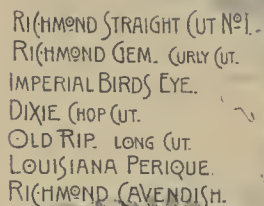 RICHMOND STRAIGHT CUT No1.
RICHMOND GEM. CURLY CUT.
IMPERIAL BIRDS EYE.
DIXIE CHOP CUT.
OLD RIP. LONG CUT.
LOUISIANA PERIQUE.
RICHMOND CAVENDISH.